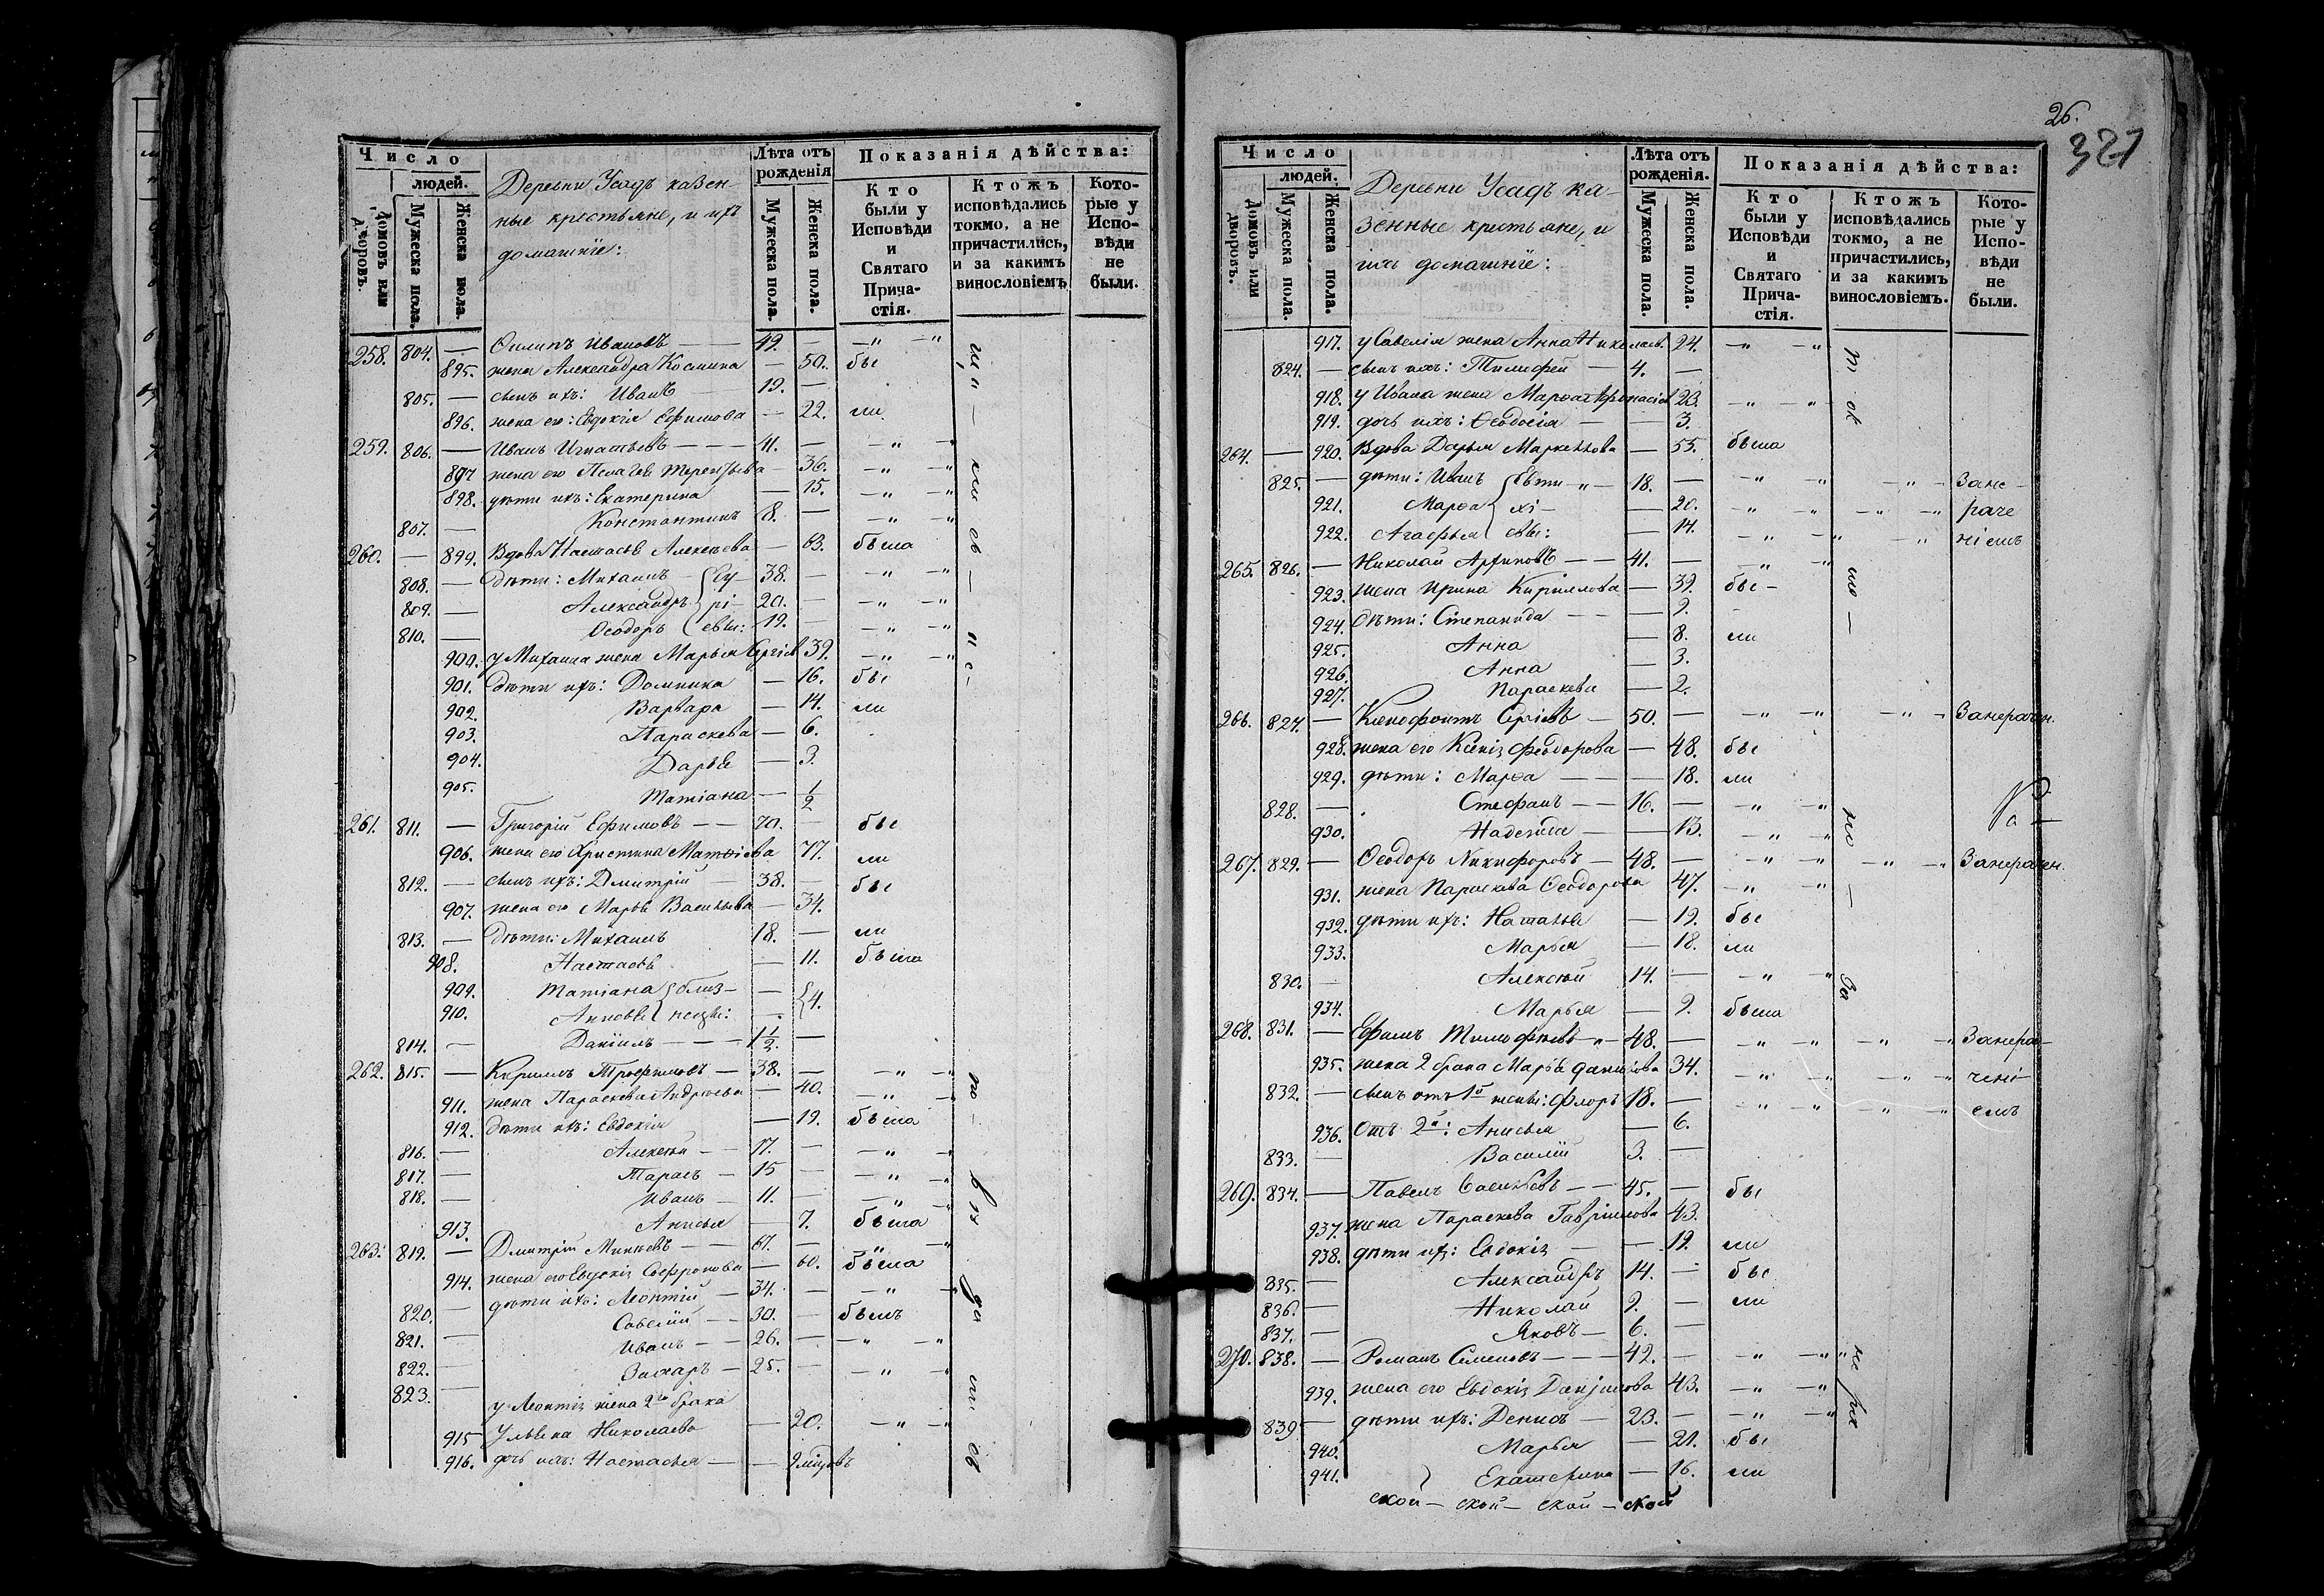 Число
людей.
Домовъ или дворовъ.
Мужеска пола.
Женска пола.
Деревни Усадъ казен-
ные крестьяне, и ихъ
домашнїе:
Лѣта отъ рожденія
Мужеска пола.
Женска пола.
Показанія дѣйства:
Кто были у Исповѣди и Святаго Прича-стія.
Ктожъ исповѣдались токмо, а не причастились, и за какимъ винословіемъ
Кото-рые у Испо-вѣди не были.
258. 804. — Филипъ Ивановъ — 49. — „ „
895. жена Александра Космина — 50. бы
805. — сынъ ихъ: Иванъ 19. —
896. жена его: Евдокія Ефимова — 22. ли
259. 806. — Иванъ Игнатьевъ — 41. — „ „
897 жена его Пелагея Терентьева — 36. „ „
898. дѣти ихъ: Екатерина — 15. „ „
807. — Константинъ 8. — „ „
260. — 899. Вдова Настасья Алексѣева — 63. была
808. — дѣти: Михаилъ 38. — „ „
809. — Александръ 20. — „ „
810. — Ѳеодоръ 19. — „ „
900. у Михаила жена Марья Сергіев 39. „ „
901. дѣти ихъ: Домника — 16. бы
902. Варвара — 14. ли
903. Параскева — 6.
904. Дарья — 3.
905. Татіана — 1/2
261. 811. — Григорій Ефимовъ — 70. — бы
906. жена его Христина Матѳіева 77. ли
812. — сынъ ихъ: Дмитрій 38. — бы
907. жена его Марья Васильева — 34.
813. — дѣти: Михаилъ 18. — ли
908. Настасья — 11. была
909. Татіана близ- — 4.
910. Анисья нецы: —
814. — Даніилъ — 1 1/2. —
262. 815. — Кирилъ Трофимовъ — 38. — „ „
911. жена Параскева Андреева — 40. „ „
912. дѣти ихъ: Евдокія — 19. была
816. — Алексѣй — 17. — „ „
817. — Тарасъ — 15 — „ „
818. — Иванъ — 11. — „ „
913. Анисья — 7. была
263. 819. — Дмитрій Минеевъ — 61. — „ „
914. жена его Евдокія Софронова — 60. была
820. — дѣти ихъ: Леонтій — 34. — „ „
821. — Савелій — 30. — былъ
822. — Иванъ — 26. — „ „
823. — Захаръ — 25. — „ „
у Леонтія жена 2го брака
915 Ульяна Николаева — 20. „ „
916. дочь ихъ: Настасья — 9 мѣсяцовъ
26.
321
Число
людей.
Домовъ или дворовъ.
Мужеска пола.
Женска пола.
Деревни Усадъ ка-
зенные крестьяне, и
ихъ домашнїе:
Лѣта отъ рожденія.
Мужеска пола.
Женска пола.
Показанія дѣйства:
Кто были у Исповѣди и Святаго Прича-стія.
Ктожъ исповѣдались токмо, а не причастились, и за какимъ винословіемъ.
Кото-рые у Испо-вѣди не были.
917. у Савелія жена Анна Николаев. 24. „ „
824. — сынъ ихъ: Тимофей — 4. —
918. у Ивана жена Марѳа 23. „ „
919. дочь ихъ: Ѳеодосія — 3.
264. — 920. Вдова Дарья Маркеллова — 55. была
825. — дѣти: Иванъ 18. — „ „ „ Зане-
921. Марѳа — 20. „ „ „ „ раче
922. Агафья — 14. „ „ „ ніемъ
265. 826. — Николай Архиповъ — 41. — „ „
923. жена Ирина Кириллова — 39. бы-
924. дѣти: Степанида — 9.
925. Анна — 8. ли
926. Анна — 3.
927. Параскева — 2.
266. 827. — Ксенофонтъ Сергіевъ — 50. — „ „ „ Занерачен.
928. жена его Ксенія Феодорова — 48. бы
929. дѣти: Марѳа — 18. ли
828. — Стефанъ — 16. — „ „
930. Надежда — 13. „ „
267. 829. — Ѳеодоръ Никифоровъ — 48. — „ „ „ „ Занерачен.
931. жена Параскева Ѳеодорова 47. „ „
932. дѣти ихъ: Наталья — 19. бы
933. Марья — 18. ли
830. — Алексѣй 14. — „ „
934. Марья — 9. была
268. 831. — Ефимъ Тимофѣевъ 48. — „ „ „ „ Занера-
935. жена 2 брака Марья Данилова 34. „ „ „ „ чені-
832. — сынъ отъ 1й жены: Флоръ 18. — „ „ „ „ емъ
936. Отъ 2й: Анисья — 6.
833. — Василій 3. —
269. 834. — Павелъ Васильевъ — 45. — бы
937. жена Параскева Гавріилова 43.
938. дѣти ихъ: Евдокія — 19. ли
835. — Александръ 14. — бы
836. — Николай 9. — ли
837. — Яковъ — 6. —
270. 838. — Романъ Семеновъ — 42. — „ „
939. жена его Евдокія Даніилова 43. „ „
839 — дѣти ихъ: Денисъ — 23. — „ „
940. Марья — 21. бы
941. Екатерина — 16. ли
ской — ской — ской — ской